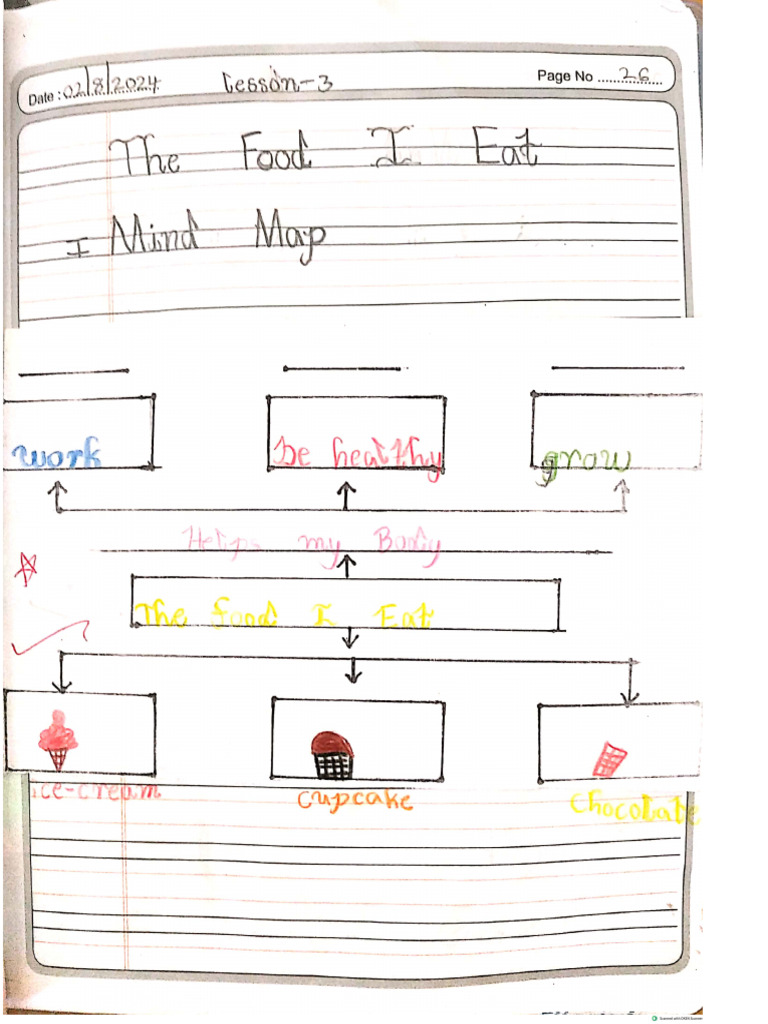 Date : 02/8/2024 Lesson-3 Page No ......26......
The Food I Eat
I Mind Map
work be healthy grow
Helps my Body
The food I Eat
ice-cream cupcake chocolate
Scanned with OKEN Scanner